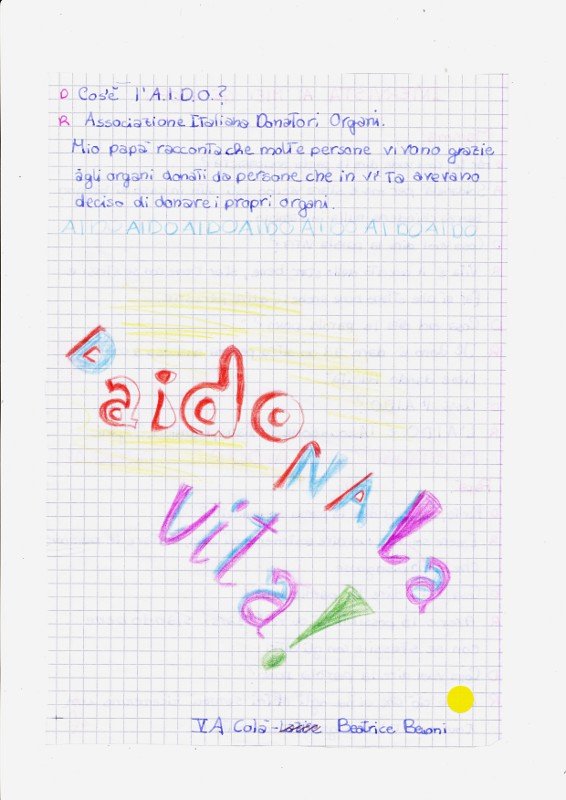 D Cos'è l'A.I.D.O.?
R Associazione Italiana Donatori Organi.
Mio papà racconta che molte persone vivono grazie
agli organi donati da persone che in vita avevano
deciso di donare i propri organi.
AIDO AIDO AIDO AIDO AIDO AIDO AIDO
L'aido
NA La
Vita!
V A Colà - Beatrice